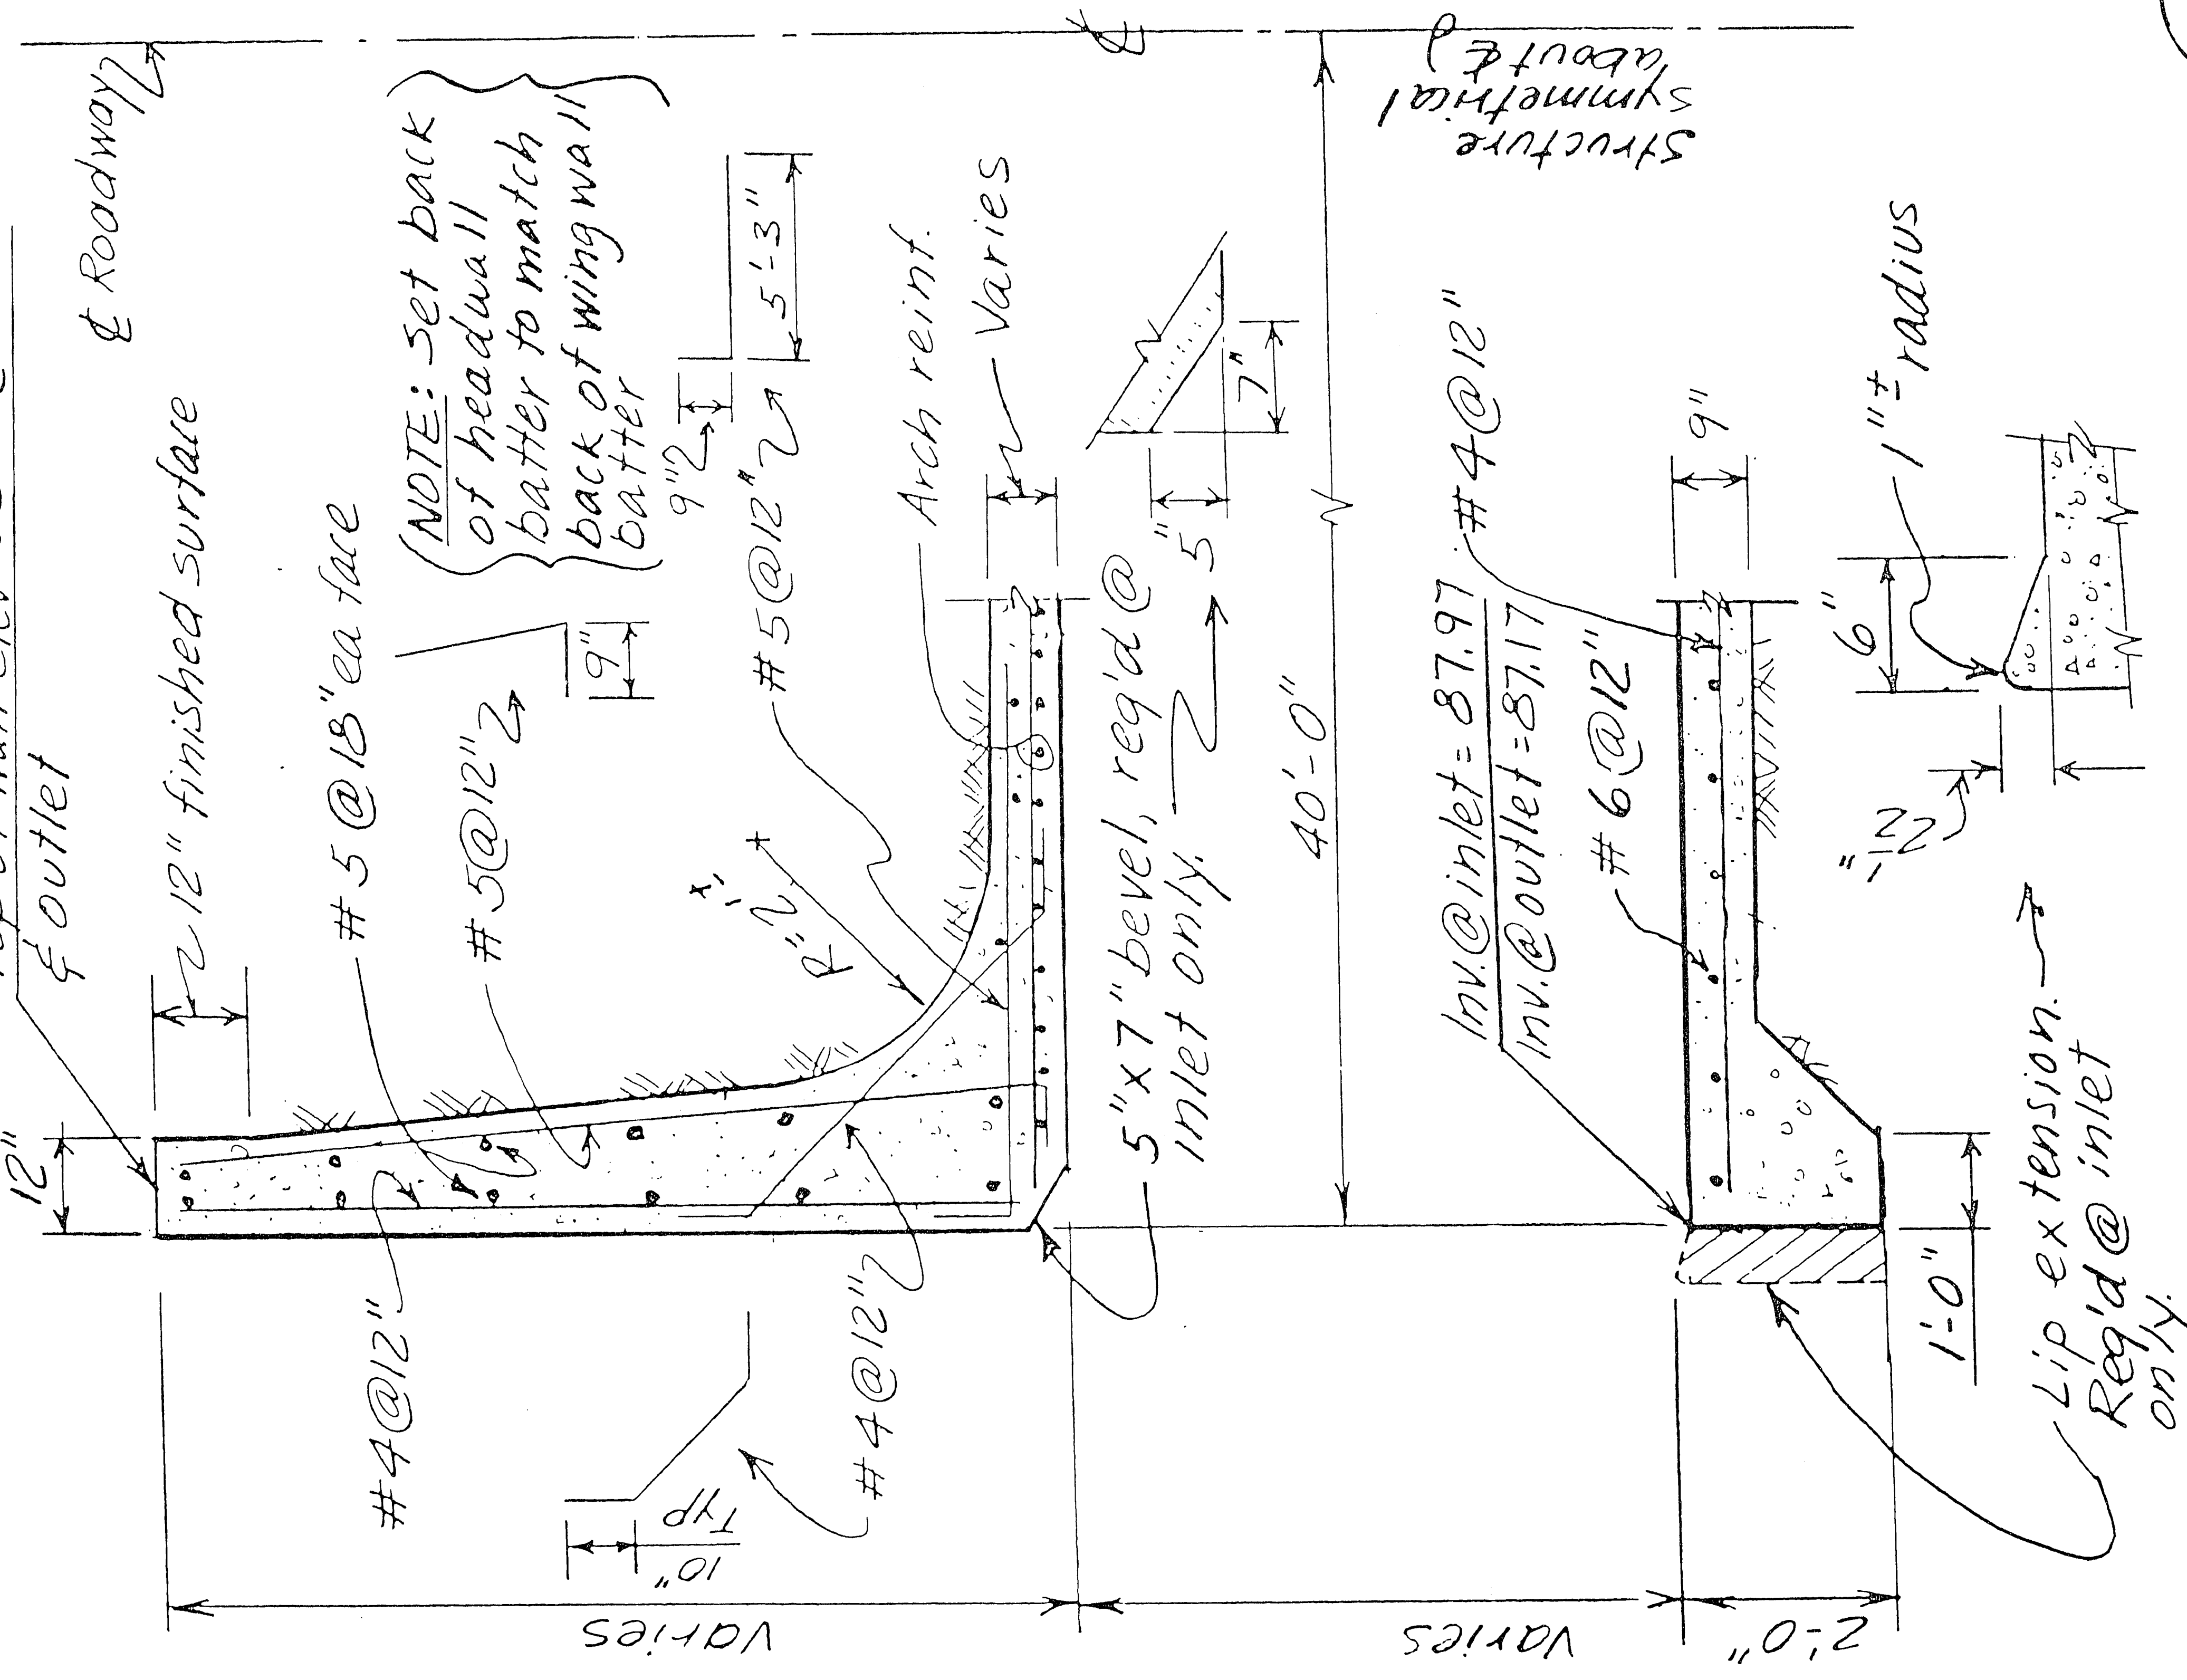 & outlet
℄ Roadway
12" finished surface
12"
#5 @ 18" ea face
#5@12"
9"
(NOTE: Set back
of headwall
batter to match
back of wingwall
batter
9"
5'-3"
#5@12"
Arch reinf.
Varies
#4@12"
10"
TYP
#4@12"
5"x7" bevel, req'd @
inlet only.
5"
7"
40'-0"
Structure
symmetrical
about ℄
℄
Inv.@inlet = 87.97
Inv.@outlet = 87.17
#4@12"
#6@12"
9"
1"± radius
6"
1'-0"
Lip extension.
Req'd @ inlet
only.
Varies
Varies
2'-0"